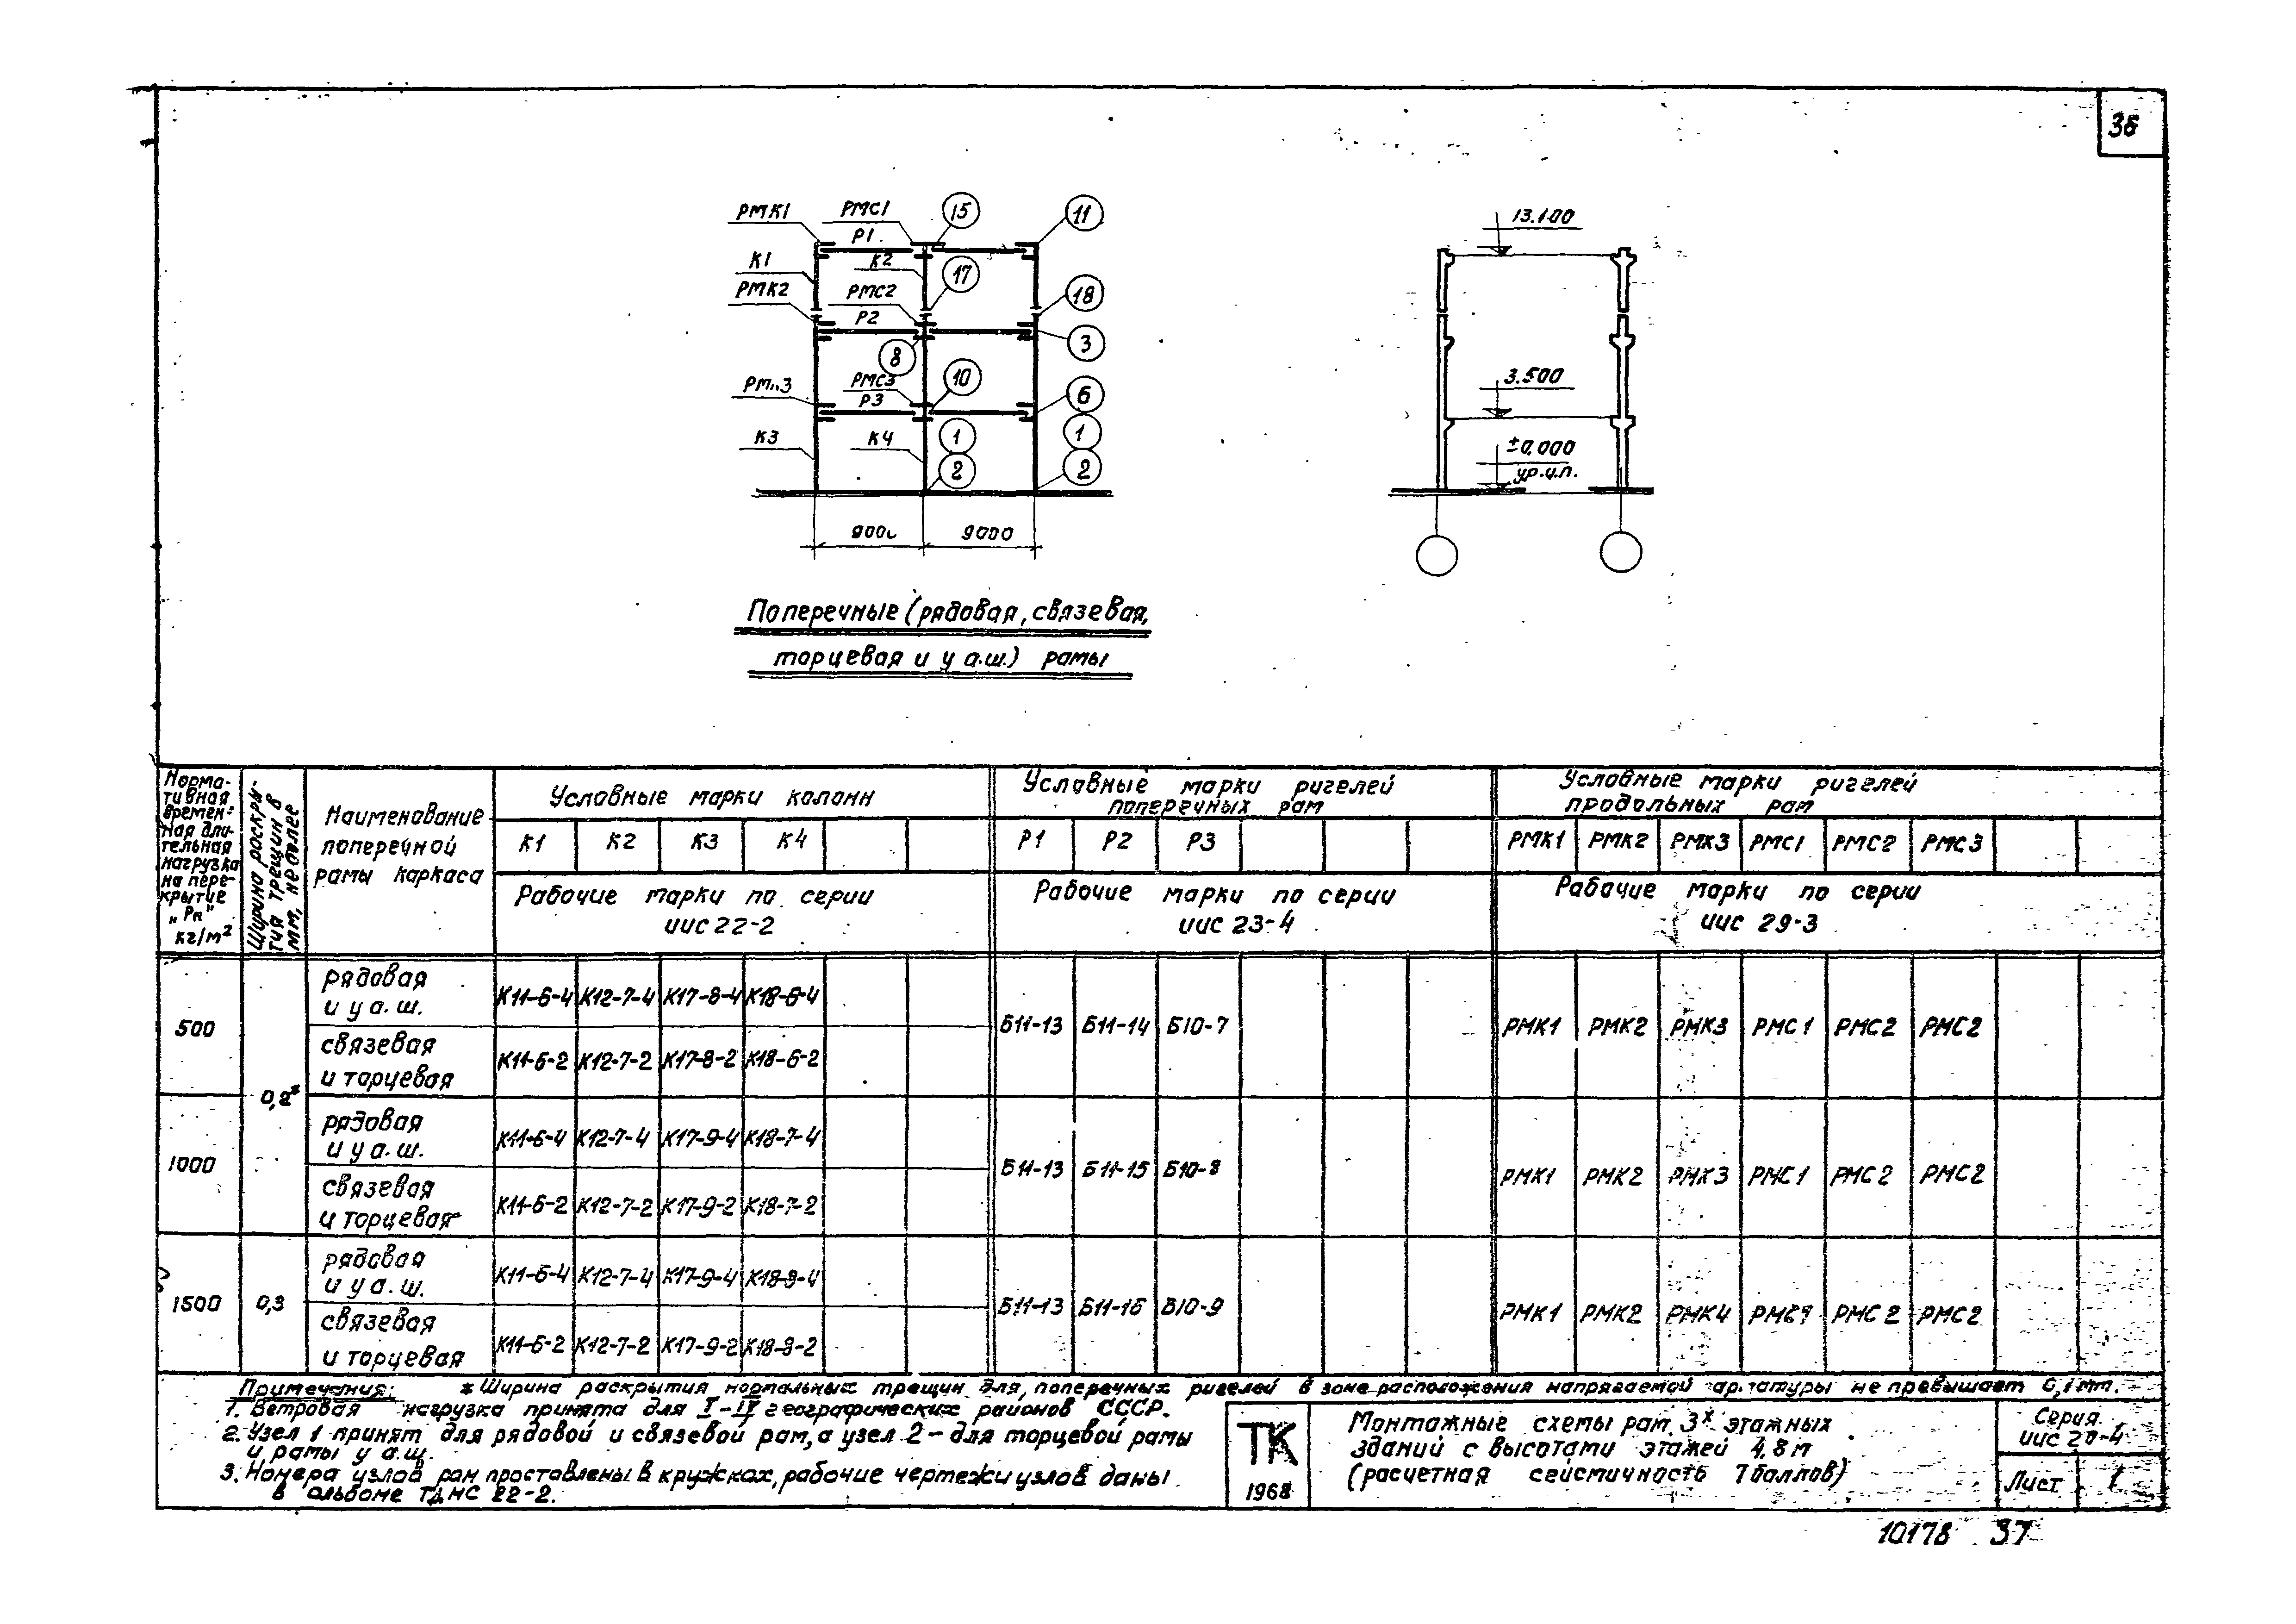 36
РМК1
РМС1
15
11
Р1
К1
К2
17
РМК2
РМС2
18
Р2
8
3
РМС3
10
6
Р3
К3
К4
1
1
2
2
9000
9000
13.100
3.500
±0,000
ур.ч.п.
Поперечные (рядовая, связевая,
торцевая и у а.ш.) рамы
Норма-
тивная
времен-
ная дли-
тельная
нагрузка
на пере-
крытие
„Рн"
кг/м²
Ширина раскры-
тия трещин в
мм, не более
Наименование
поперечной
рамы каркаса
Условные марки колонн
К1 К2 К3 К4
Рабочие марки по серии
ИИС 22-2
Условные марки ригелей
поперечных рам
Р1 Р2 Р3
Рабочие марки по серии
ИИС 23-4
Условные марки ригелей
продольных рам
РМК1 РМК2 РМК3 РМС1 РМС2 РМС3
Рабочие марки по серии
ИИС 29-3
500
0,2*
рядовая
и у а.ш.
К11-6-4 К12-7-4 К17-8-4 К18-6-4
связевая
и торцевая
К11-6-2 К12-7-2 К17-8-2 К18-6-2
Б11-13 Б11-14 Б10-7
РМК1 РМК2 РМК3 РМС1 РМС2 РМС2
1000
рядовая
и у а.ш.
К11-6-4 К12-7-4 К17-9-4 К18-7-4
связевая
и торцевая
К11-6-2 К12-7-2 К17-9-2 К18-7-2
Б11-13 Б11-15 Б10-8
РМК1 РМК2 РМК3 РМС1 РМС2 РМС2
1500
0,3
рядовая
и у а.ш.
К11-6-4 К12-7-4 К17-9-4 К18-8-4
связевая
и торцевая
К11-6-2 К12-7-2 К17-9-2 К18-8-2
Б11-13 Б11-16 Б10-9
РМК1 РМК2 РМК4 РМС2 РМС2
Примечания: * Ширина раскрытия нормальных трещин для поперечных ригелей в зоне расположения напрягаемой арматуры не превышает 0,1 мм.
1. Ветровая нагрузка принята для I-IV географических районов СССР.
2. Узел 1 принят для рядовой и связевой рам, а узел 2 - для торцевой рамы
и рамы у а.ш.
3. Номера узлов рам проставлены в кружках, рабочие чертежи узлов даны
в альбоме 22-2.
ТК
1968
Монтажные схемы рам 3х этажных
зданий с высотами этажей 4,8 м
(расчетная сейсмичность 7 баллов)
Серия
ИИС 20-4
Лист 1
10178 37